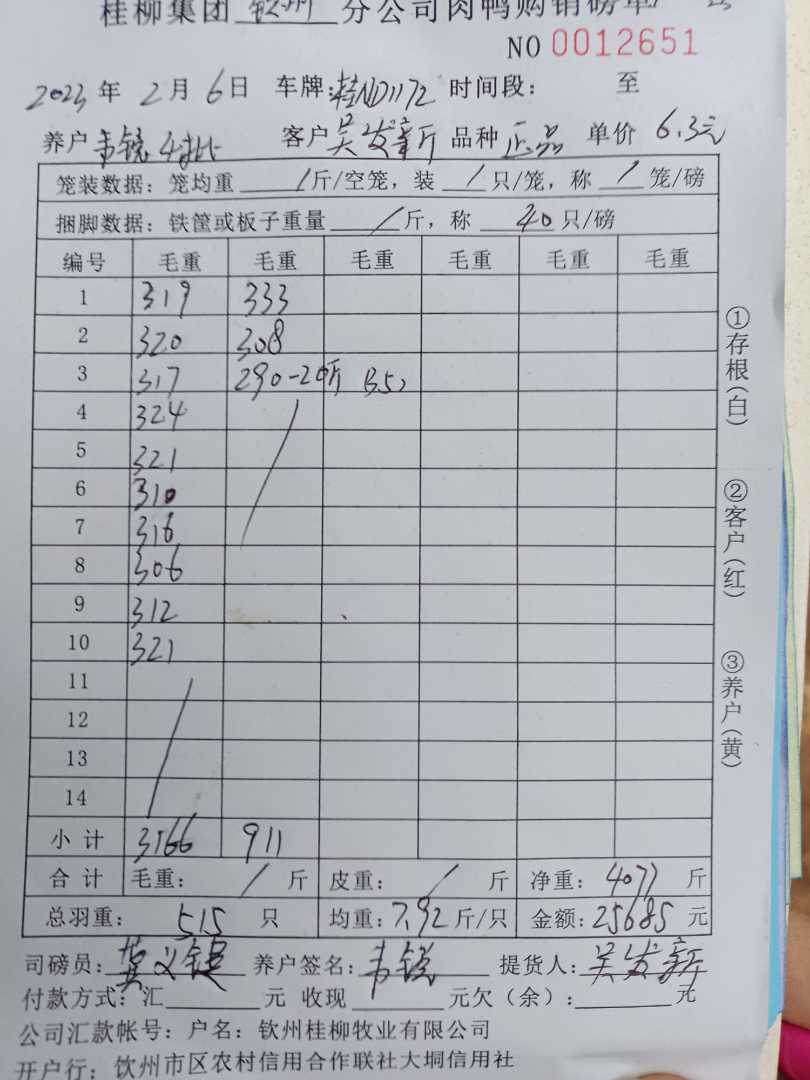 桂柳集团 钦州 分公司肉鸭购销磅单
NO 0012651
2023年 2月 6日 车牌:桂ND1172 时间段: 至
养户 韦锐 4批 客户 吴发新 品种 正品 单价 6.3元
笼装数据: 笼均重 / 斤/空笼, 装 / 只/笼, 称 / 笼/磅
捆脚数据: 铁筐或板子重量 / 斤, 称 40 只/磅
编号 毛重 毛重 毛重 毛重 毛重 毛重
1 319 333
2 320 308
3 317 290-20斤
4 324
5 321
6 310
7 316
8 306
9 312
10 321
11
12
13
14
小计 3166 911
合计 毛重: / 斤 皮重: / 斤 净重: 4077 斤
总羽重: 515 只 均重: 7.92 斤/只 金额: 25685 元
司磅员: 养户签名: 韦锐 提货人: 吴发新
付款方式: 汇 元 收现 元欠(余): 元
公司汇款帐号: 户名: 钦州桂柳牧业有限公司
开户行: 钦州市区农村信用合作联社大垌信用社
①存根(白)
②客户(红)
③养户(黄)